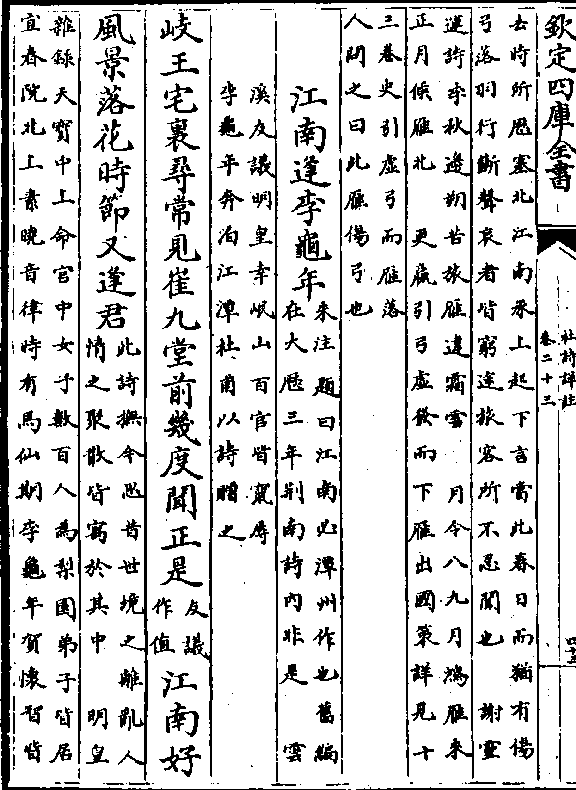 欽定四庫全書
杜詩詳註
卷二十三
四十五
去時所歷塞北江南承上起下言當此春日而猶有傷
弓落羽行斷聲哀者皆窮途旅客所不忍聞也 謝靈
運詩季秋邊朔苦旅雁違霜雪 月令八九月鴻雁來
正月候雁北 更羸引弓虛發而下雁出國策詳見十
三卷史引虛弓而雁落
人問之曰此雁傷弓也
江南逢李龜年
朱注題曰江南必潭州作也舊編
在大歷三年荆南詩內非是 雲
溪友議明皇幸岷山百官皆竄辱
李龜年奔泊江潭杜甫以詩贈之
岐王宅裏尋常見崔九堂前幾度聞正是
友議
作值
江南好
風景落花時節又逢君
此詩撫今思昔世境之離亂人
情之聚散皆寓於其中 明皇
雜錄天寶中上命宮中女子數百人為梨園弟子皆居
宜春院北上素曉音律時有馬仙期李龜年賀懷智皆